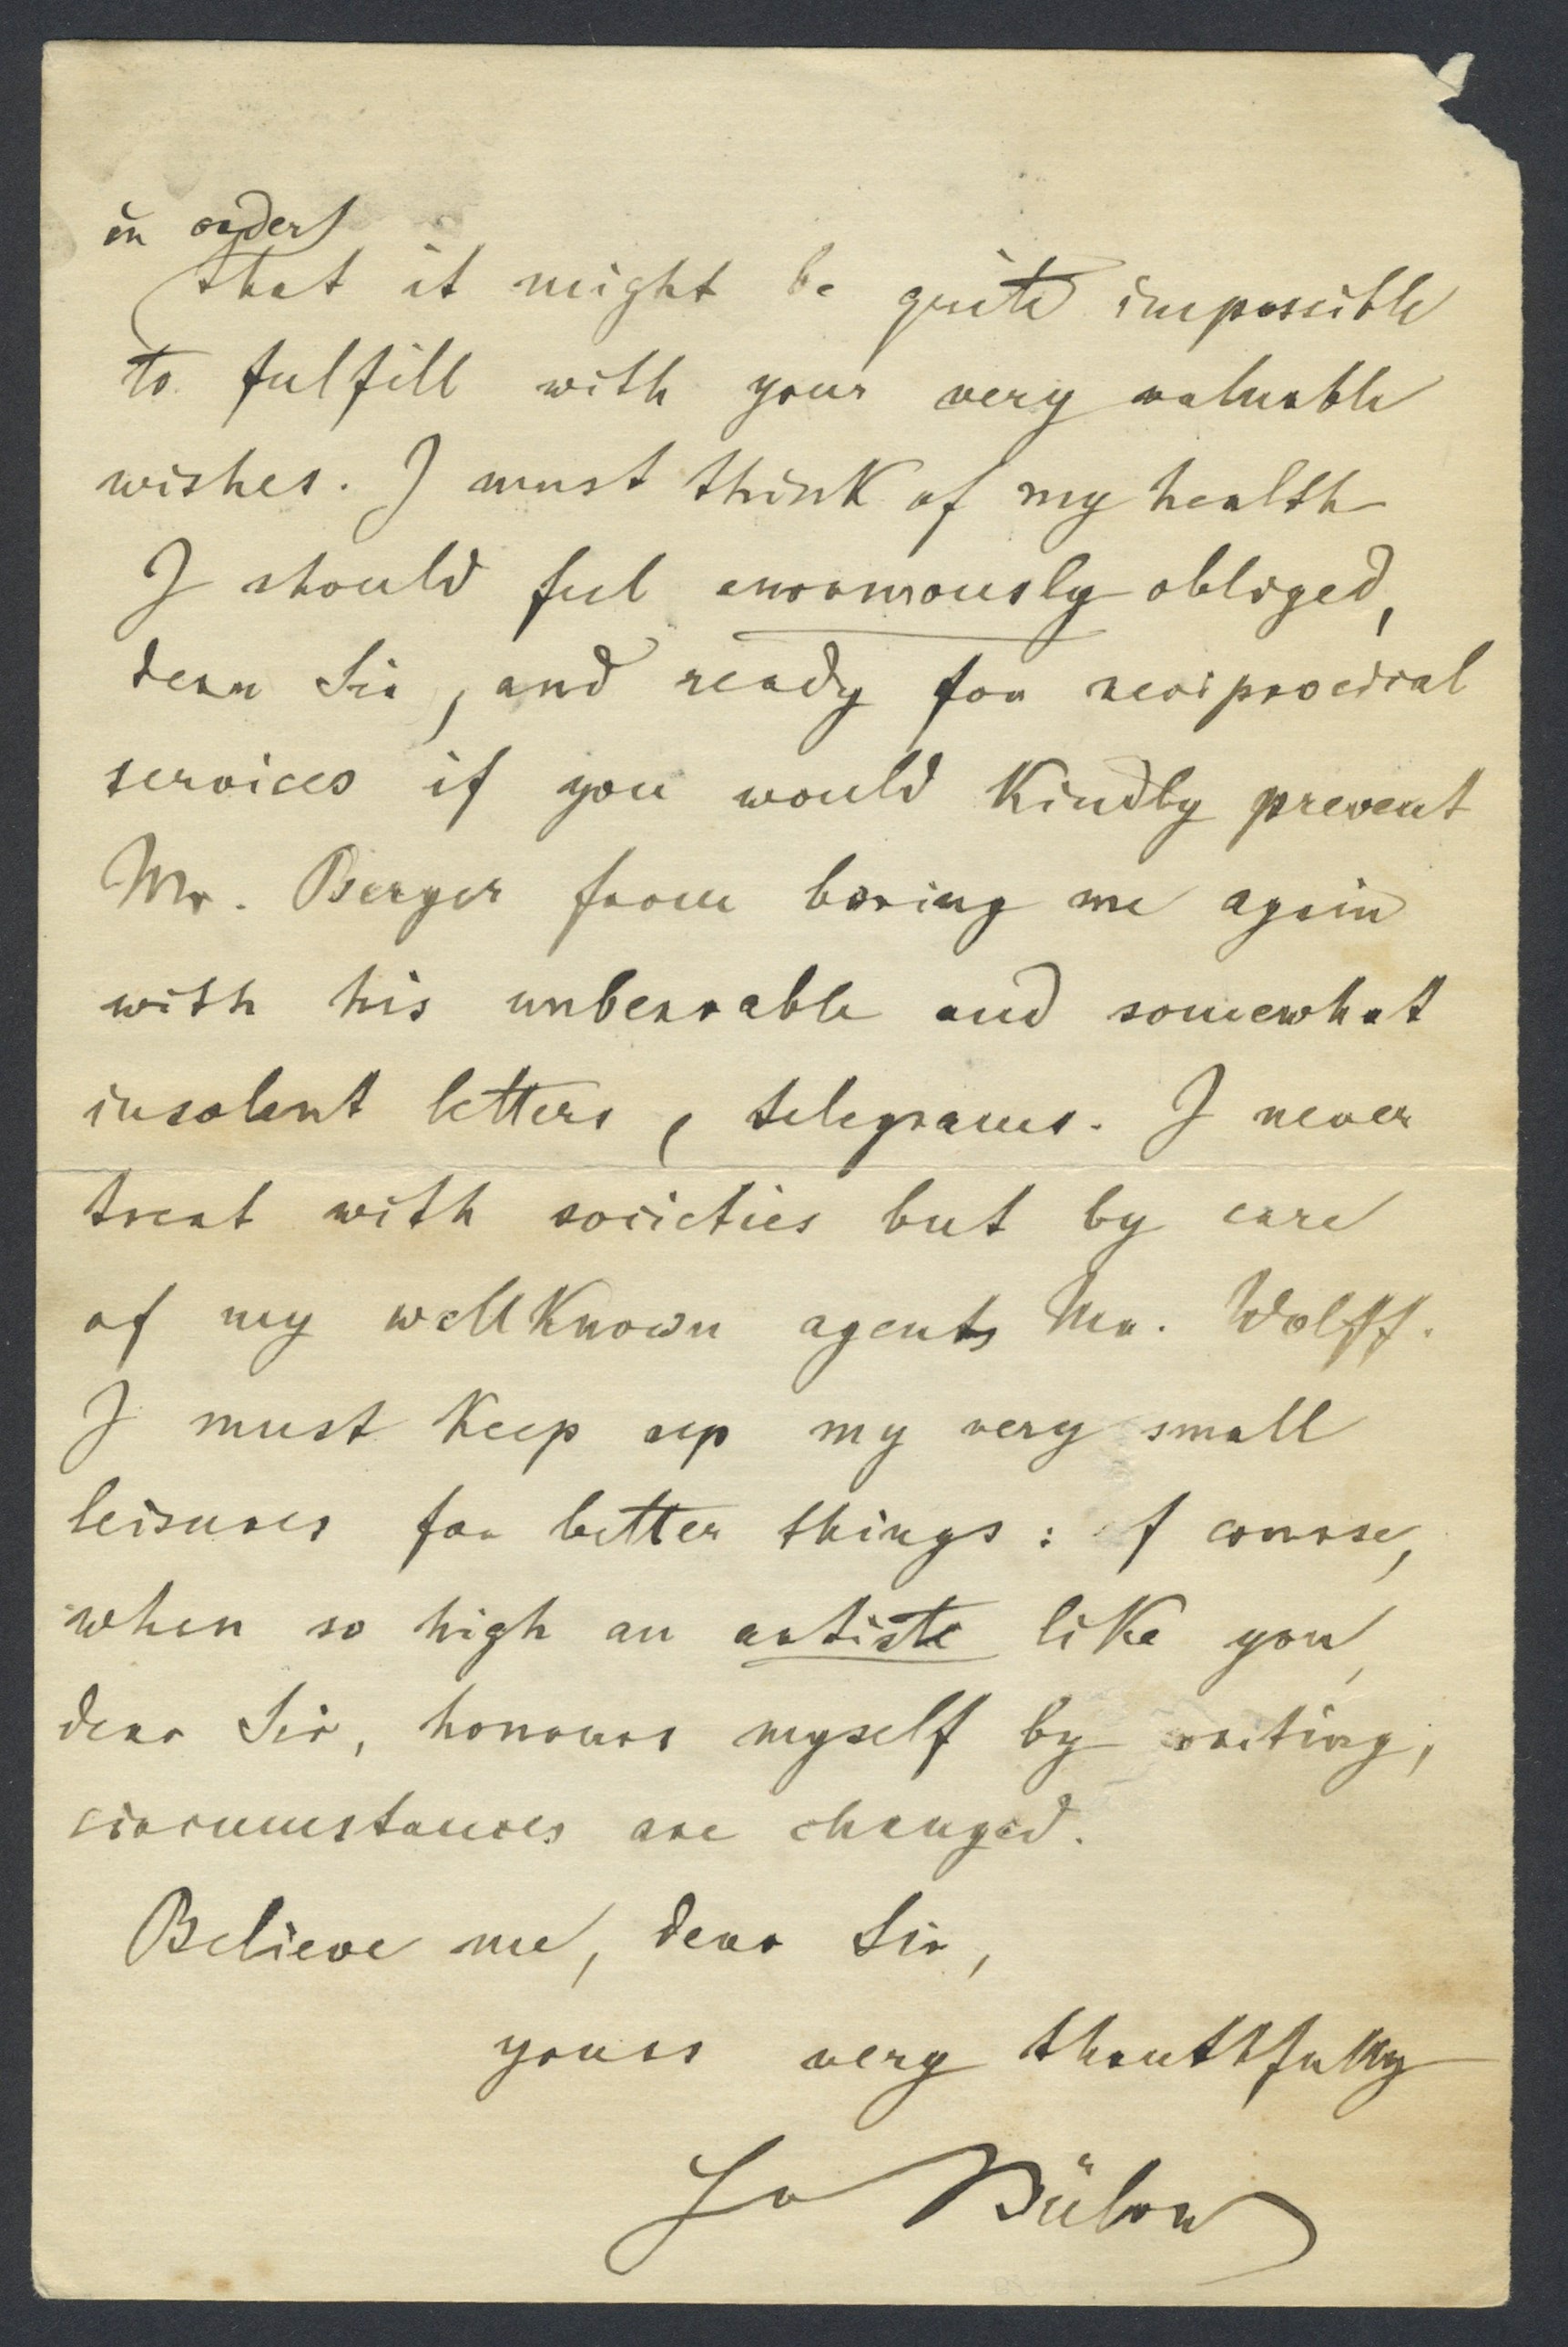 in order
that it might be quite impossible
to fulfill with your very valuable
wishes. I must think of my health
I should feel enormously obliged,
dear Sir, and ready for reciprocial
services if you would kindly prevent
Mr. Berger from boring me again
with his unbearable and somewhat
insolent letters, telegrams. I never
treat with societies but by care
of my wellknown agents Mr. Wolff.
I must keep up my very small
leisures for better things: of course,
when so high an artiste like you,
dear Sir, honours myself by writing,
circumstances are changed.
Believe me, dear Sir,
yours very
Bülow